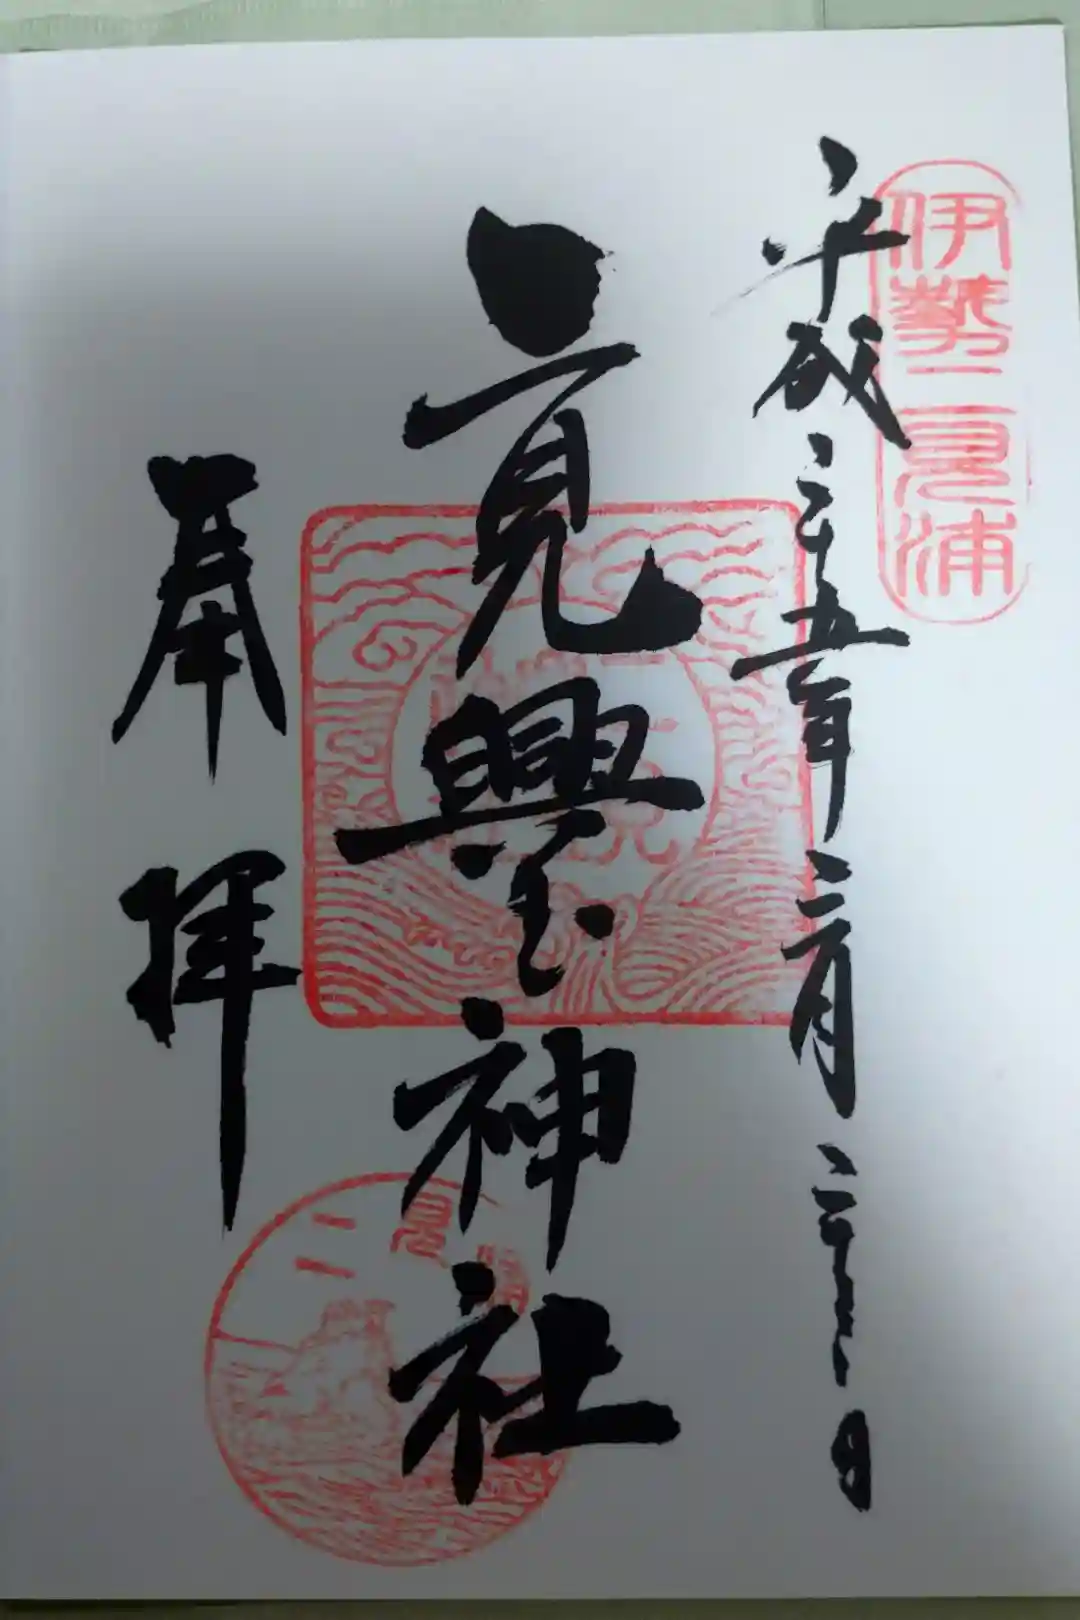 伊勢二見浦
平成二十五年二月二十三日
二見興玉神社
奉拝
二見浦